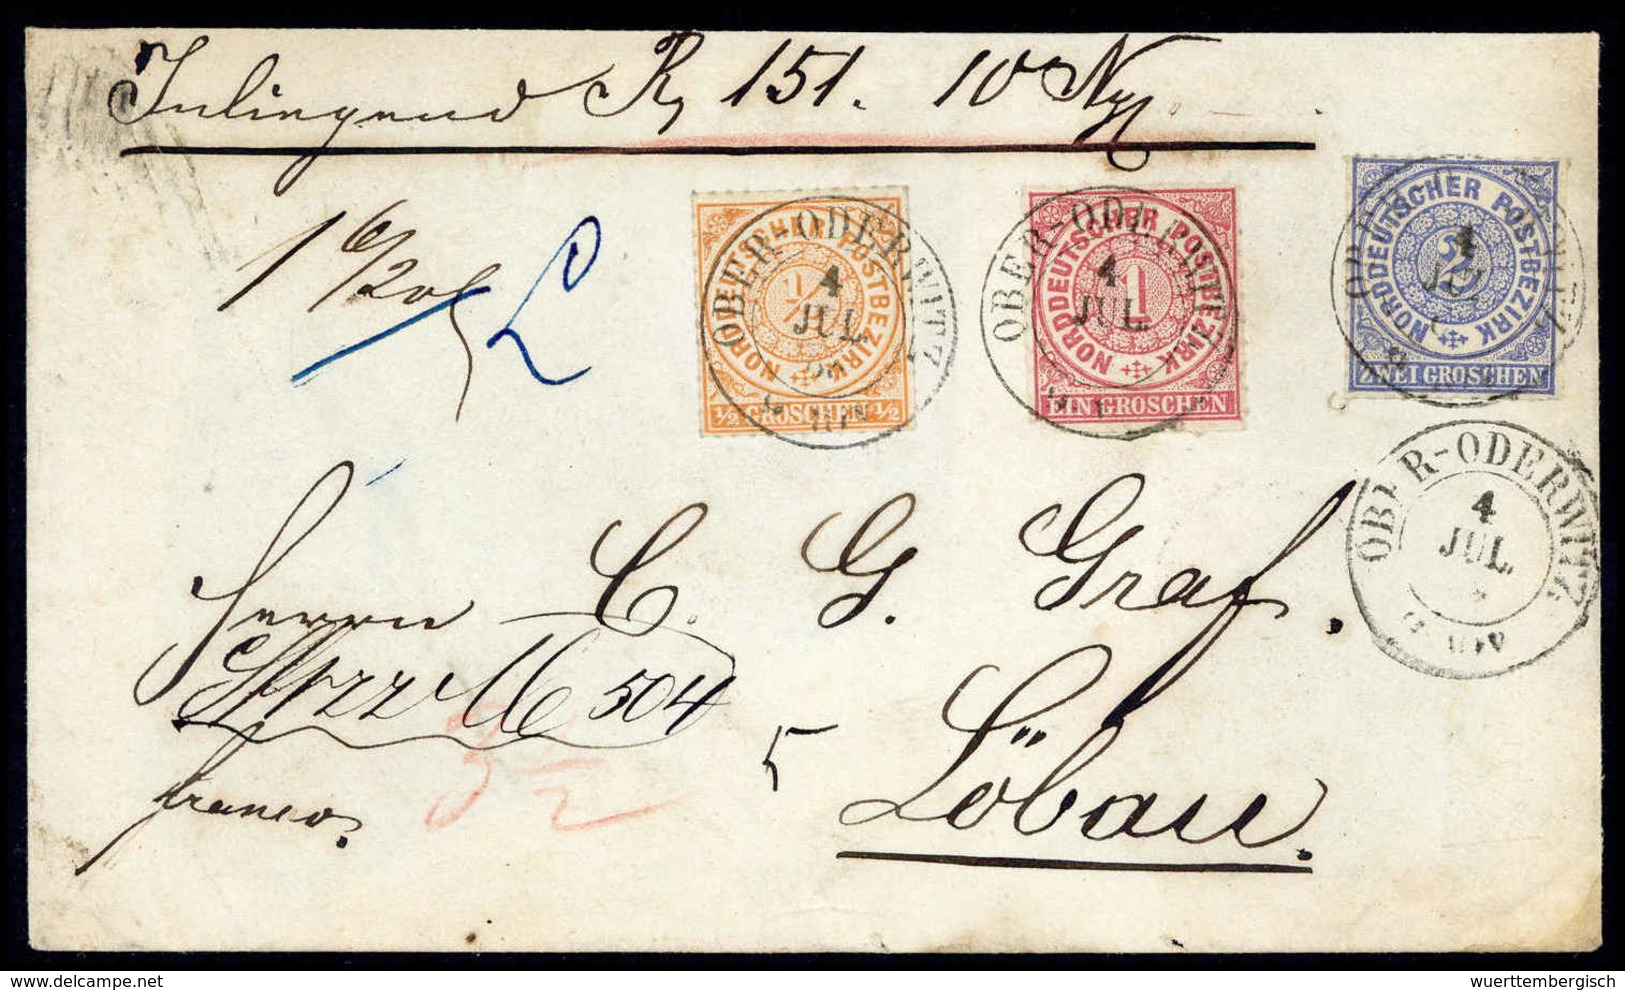 Inliegend R 151. 10 Ngr.
1 6/20
½ GROSCHEN ½
NORDDEUTSCHER POSTBEZIRK
OBER-ODERWITZ
4
JUL.
1
NORDDEUTSCHER POSTBEZIRK
EIN GROSCHEN
OBER-ODERWITZ
4
JUL.
2
NORDDEUTSCHER POSTBEZIRK
ZWEI GROSCHEN
4
OBER-ODERWITZ
4
JUL.
Herrn C. G. Graf.
504
5 Löbau.
franco.
3½
wuerttembergisch